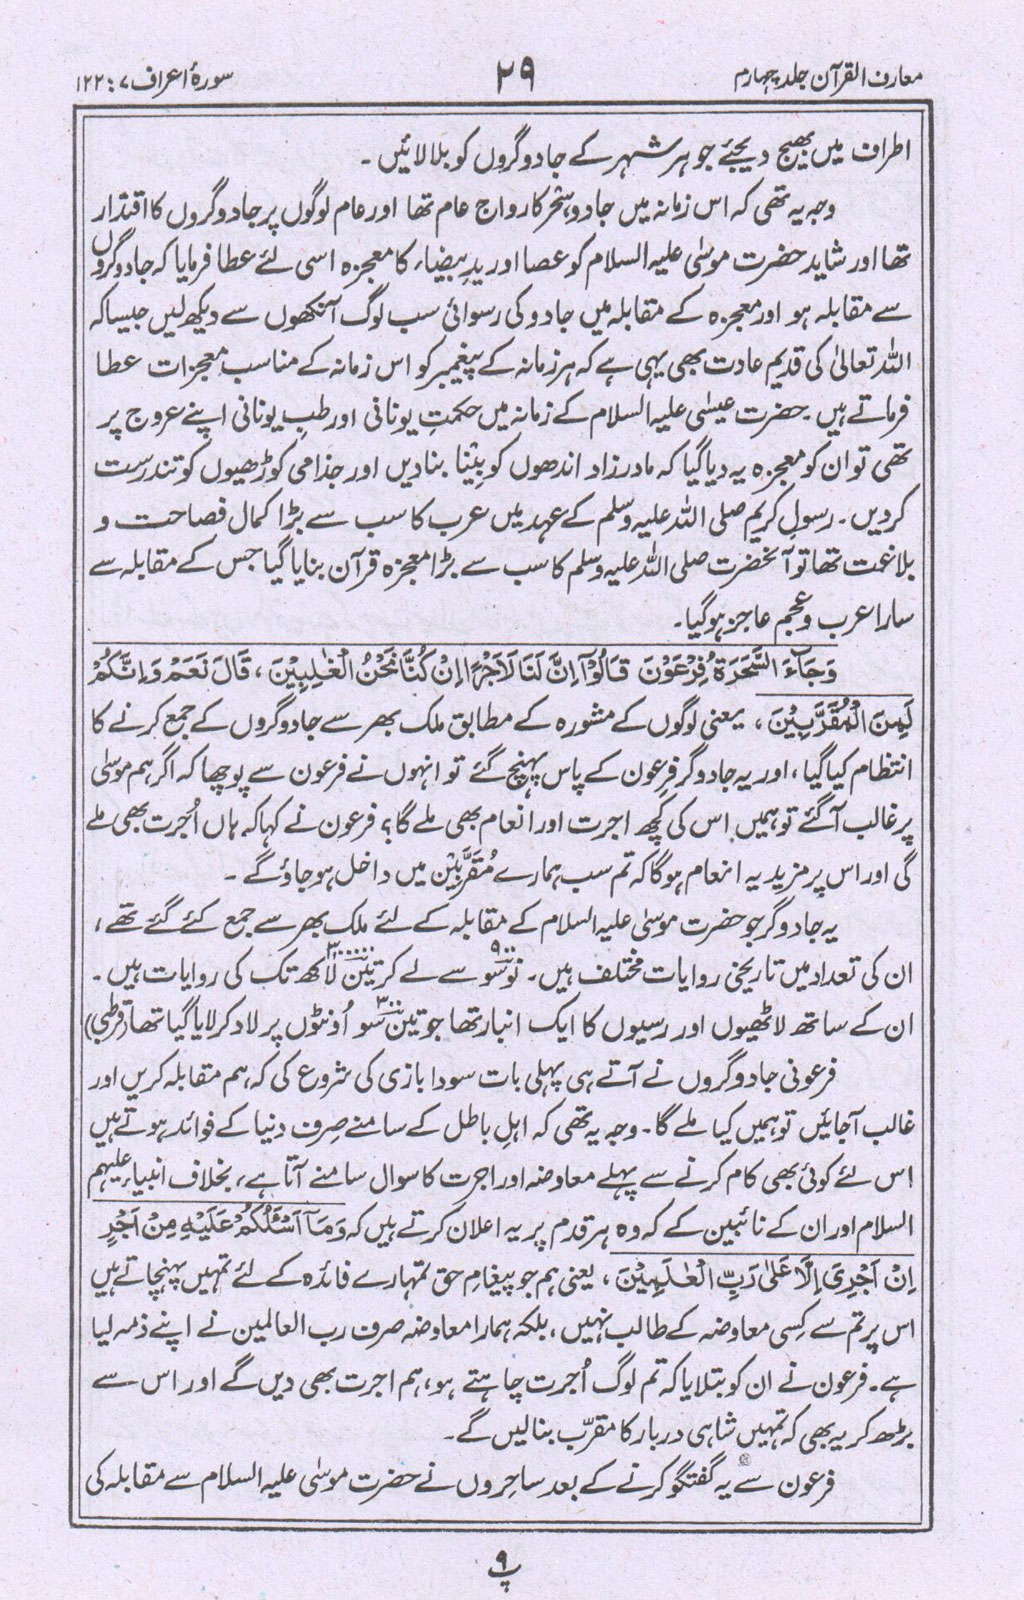 معارف القرآن جلد چہارم
۲۹
سورۂ اعراف ۷ : ۱۲۲
اطراف میں بھیج دیجئے جو ہر شہر کے جادوگروں کو بلا لائیں ۔
وجہ یہ تھی کہ اس زمانہ میں جادو، سحر کا رواج عام تھا اور عام لوگوں پر جادوگروں کا اقتدار
تھا اور شاید حضرت موسیٰ علیہ السلام کو عصا اور یدِ بیضاء کا معجزہ اسی لئے عطا فرمایا کہ جادوگروں
سے مقابلہ ہو اور معجزہ کے مقابلہ میں جادو کی رسوائی سب لوگ آنکھوں سے دیکھ لیں جیسا کہ
اللہ تعالیٰ کی قدیم عادت بھی یہی ہے کہ ہر زمانہ کے پیغمبر کو اس زمانہ کے مناسب معجزات عطا
فرماتے ہیں۔ حضرت عیسٰی علیہ السلام کے زمانہ میں حکمتِ یونانی اور طبِ یونانی اپنے عروج پر
تھی تو ان کو معجزہ یہ دیا گیا کہ مادر زاد اندھوں کو بینا بنا دیں اور جذامی کوڑھیوں کو تندرست
کردیں۔ رسولِ کریم صلی اللہ علیہ وسلم کے عہد میں عرب کا سب سے بڑا کمال فصاحت و
بلاغت تھا تو آنحضرت صلی اللہ علیہ وسلم کا سب سے بڑا معجزہ قرآن بنایا گیا جس کے مقابلہ سے
سارا عرب و عجم عاجز ہوگیا۔
وَجَآءَ السَّحَرَةُ فِرْعَوْنَ قَالُوْٓا اِنَّ لَنَا لَاَجْرًا اِنْ كُنَّا نَحْنُ الْغٰلِبِيْنَ، قَالَ نَعَمْ وَاِنَّكُمْ
لَمِنَ الْمُقَرَّبِيْنَ ، یعنی لوگوں کے مشورہ کے مطابق ملک بھر سے جادوگروں کے جمع کرنے کا
انتظام کیا گیا، اور یہ جادوگر فرعون کے پاس پہنچ گئے تو انہوں نے فرعون سے پوچھا کہ اگر ہم موسیٰ
پر غالب آگئے تو ہمیں اس کی کچھ اجرت اور انعام بھی ملے گا؟ فرعون نے کہا کہ ہاں اُجرت بھی ملے
گی اور اس پر مزید یہ انعام ہوگا کہ تم سب ہمارے مُقَرَّبِیْن میں داخل ہو جاؤ گے ۔
یہ جادوگر جو حضرت موسیٰ علیہ السلام کے مقابلہ کے لئے ملک بھر سے جمع کئے گئے تھے ،
ان کی تعداد میں تاریخی روایات مختلف ہیں۔ نو سو ۹۰۰ سے لے کر تین لاکھ ۳۰۰۰۰۰ تک کی روایات ہیں ۔
ان کے ساتھ لاٹھیوں اور رسیوں کا ایک انبار تھا جو تین سو ۳۰۰ اُونٹوں پر لاد کر لایا گیا تھا (قرطبی)
فرعونی جادوگروں نے آتے ہی پہلی بات سودا بازی کی شروع کی کہ ہم مقابلہ کریں اور
غالب آجائیں تو ہمیں کیا ملے گا۔ وجہ یہ تھی کہ اہلِ باطل کے سامنے صرف دنیا کے فوائد ہوتے ہیں
اس لئے کوئی بھی کام کرنے سے پہلے معاوضہ اور اجرت کا سوال سامنے آتا ہے، بخلاف انبیاء علیہم
السلام اور ان کے نائبین کے کہ وہ ہر قدم پر یہ اعلان کرتے ہیں کہ وَمَآ اَسْئَلُكُمْ عَلَيْهِ مِنْ اَجْرٍ
اِنْ اَجْرِیَ اِلَّا عَلٰى رَبِّ الْعٰلَمِيْنَ ، یعنی ہم جو پیغامِ حق تمہارے فائدہ کے لئے تمہیں پہنچاتے ہیں
اس پر تم سے کسی معاوضہ کے طالب نہیں ، بلکہ ہمارا معاوضہ صرف رب العالمین نے اپنے ذمہ لیا
ہے۔ فرعون نے ان کو بتلایا کہ تم لوگ اُجرت چاہتے ہو، ہم اجرت بھی دیں گے اور اس سے
بڑھ کر یہ بھی کہ تمہیں شاہی دربار کا مقرّب بنا لیں گے ۔
فرعون سے یہ گفتگو کرنے کے بعد ساحروں نے حضرت موسیٰ علیہ السلام سے مقابلہ کی
پ ۹